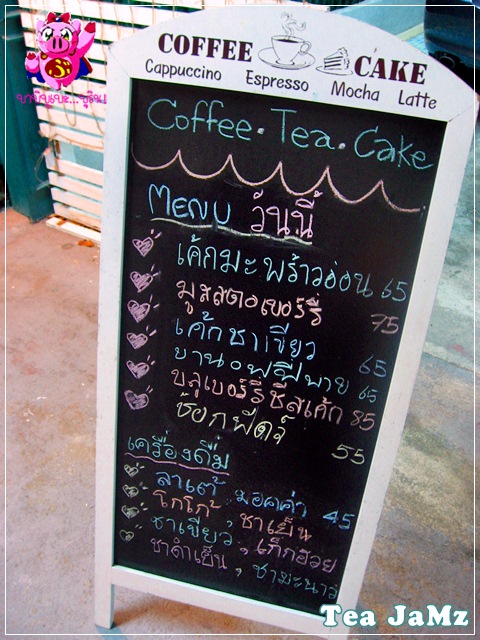 COFFEE CAKE
Cappuccino Espresso Mocha Latte
Coffee · Tea · Cake
MENU วันนี้
เค้กมะพร้าวอ่อน 65
มูสสตอเบอร์รี่ 75
เค้กชาเขียว 65
บานอฟฟีพาย 65
บลูเบอร์รี่ชีสเค้ก 85
ช๊อกฟัดจ์ 55
เครื่องดื่ม
ลาเต้ มอคค่า 45
โกโก้ , ชาเย็น
ชาเขียว , เก็กฮวย
ชาดำเย็น , ชามะนาว
Tea JaMz